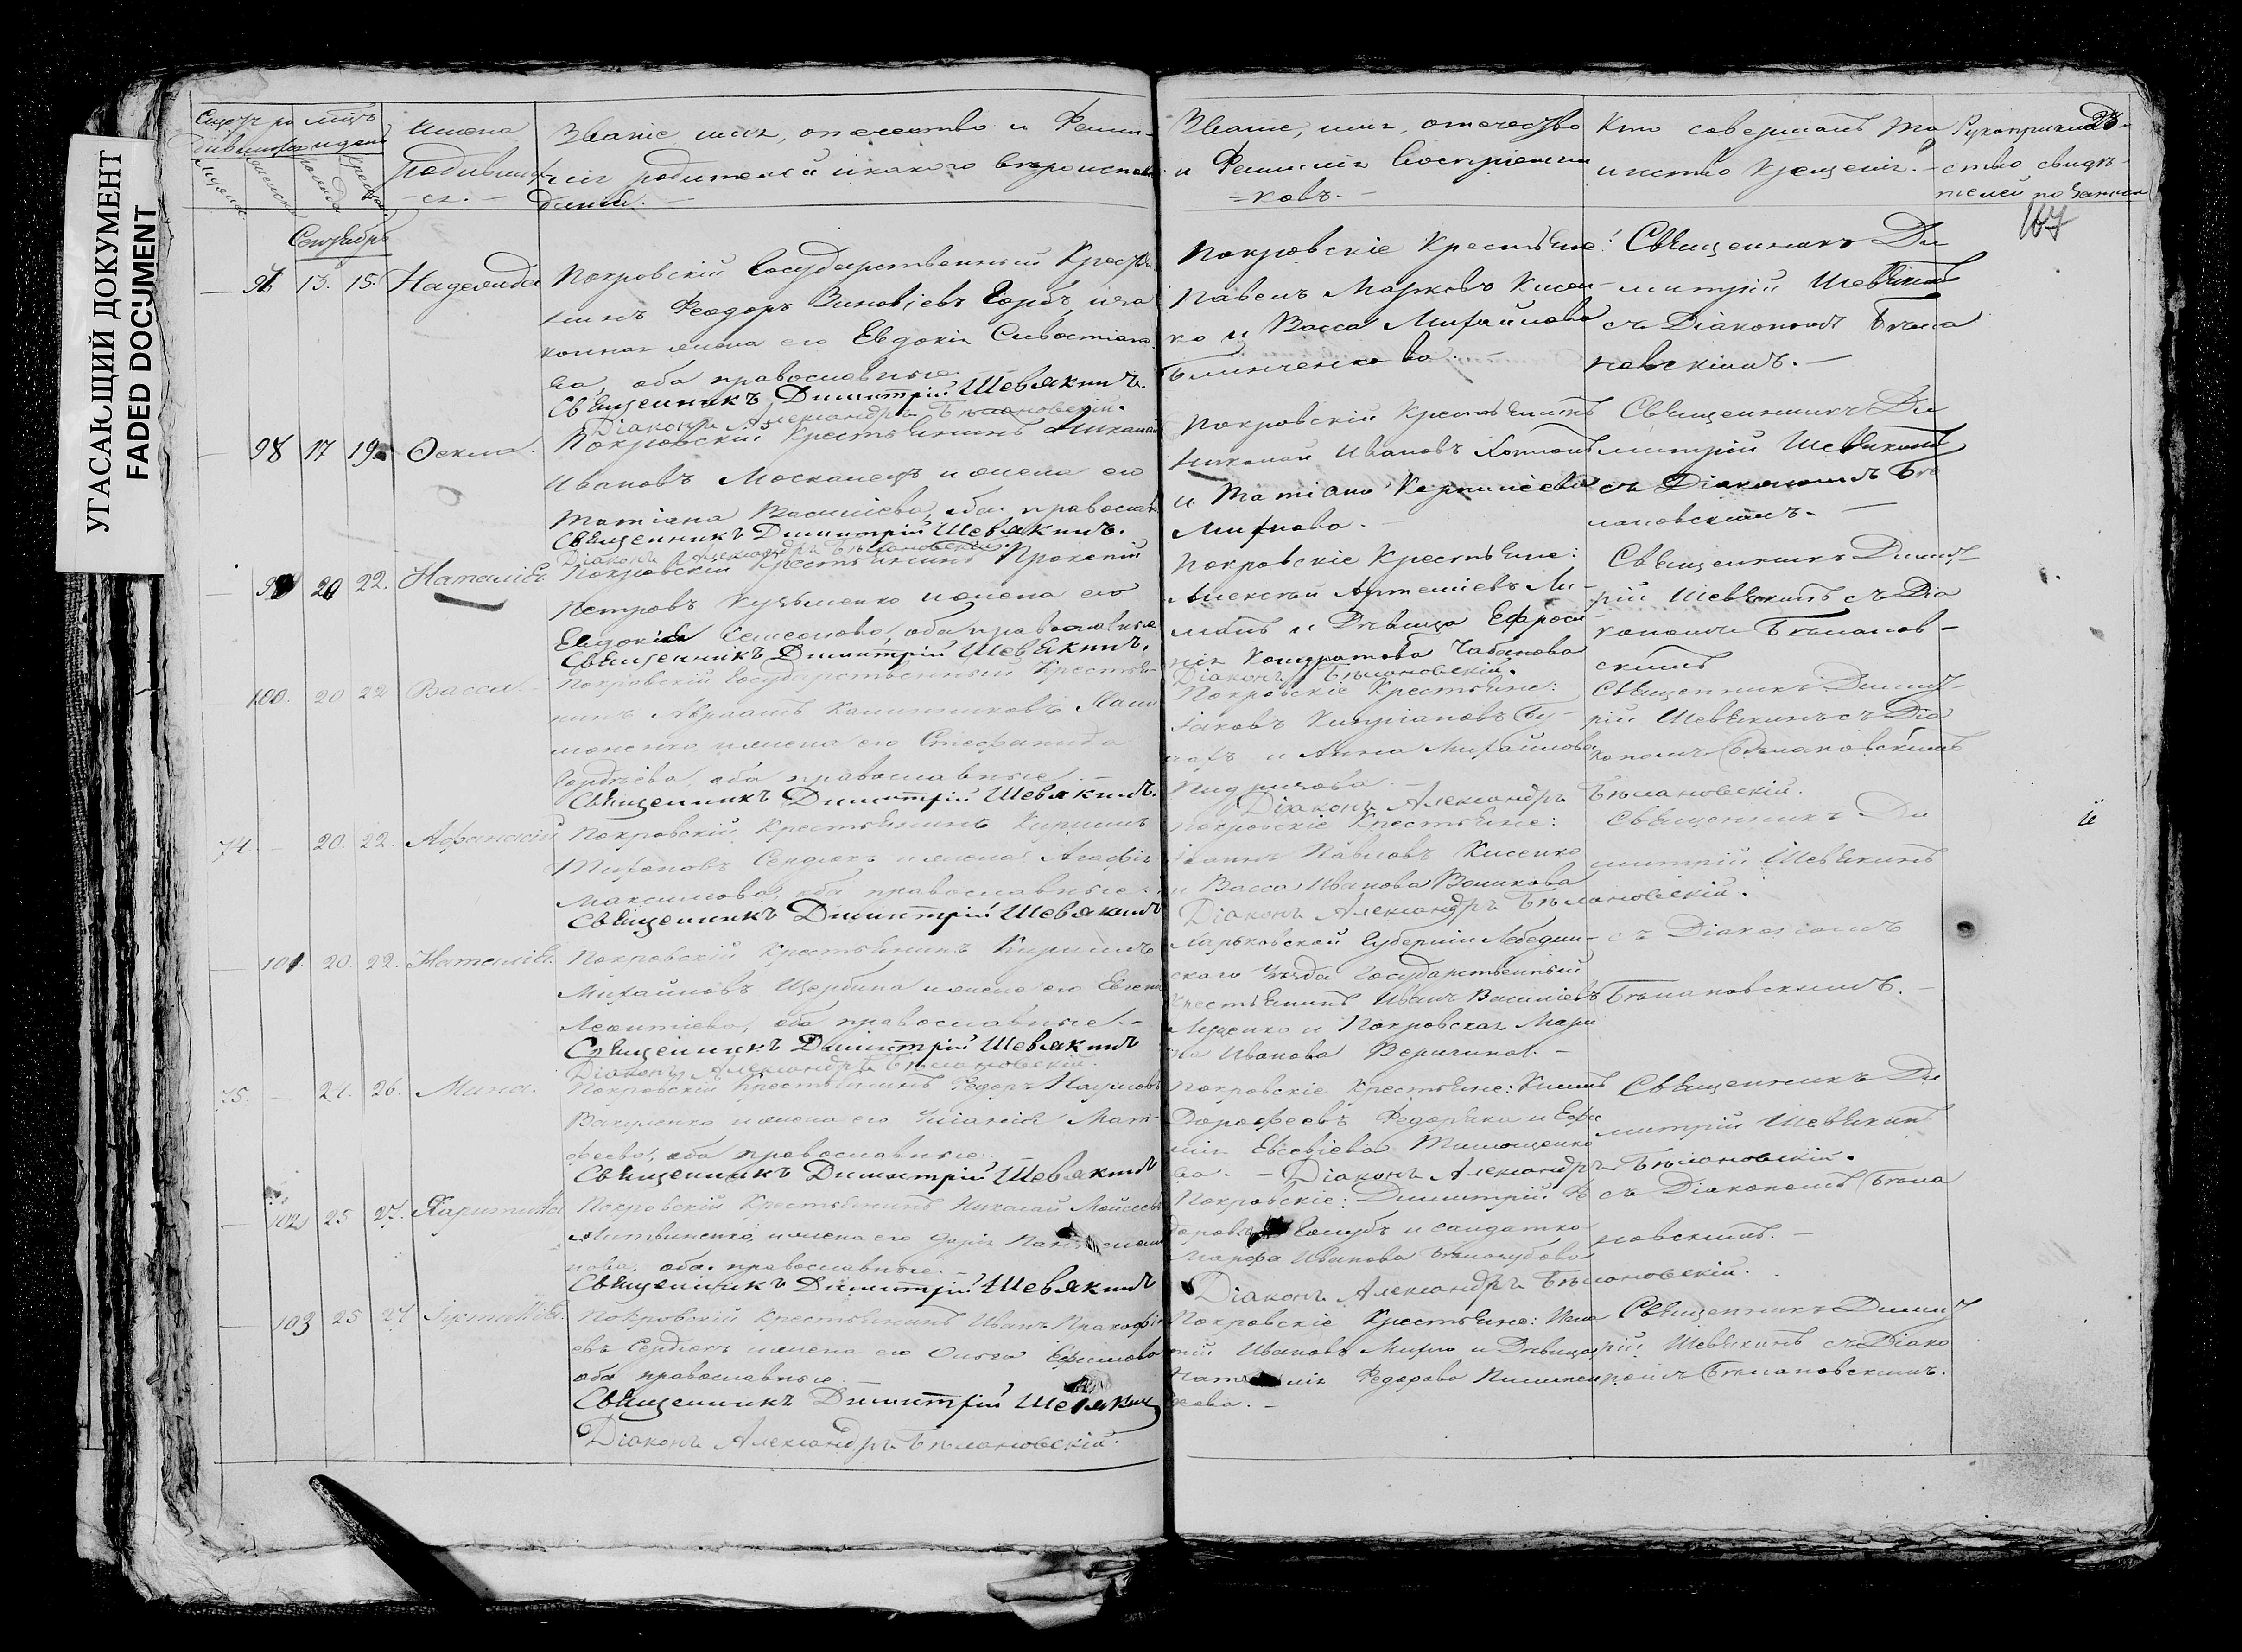 УГАСАЮЩИЙ ДОКУМЕНТ
FADED DOCUMENT
Имена
Званіе имя, отечество и Фами-
Званіе, имя, отечество
Кто совершалъ та
и Фамилія Воспріемни
=ковъ.-
инство Крещенія.-
ство свидѣ-
167
Сентябрь
13. 15. Надежда
Покровскій Государственный Кресть
нинъ Феодоръ Зиновіевъ Горбъ, и за
конная жена его Евдокія Севастіано
ва, оба православные
Священникъ Димитрій Шевякинъ.
Діаконъ Александръ Бѣлановскій.
Покровскіе Крестьяне:
Павелъ Марковъ Кисен-
ко и Васса Михайлова
Блинченкова.-
Священникъ Ди
митрій Шевякинъ
съ Діакономъ Бѣла
новскимъ.-
98 17 19 Ѳекла.
Покровскій Крестьянинъ Николай
Ивановъ Москалецъ и жена его
Татіана Васильева, оба православ
Священникъ Димитрій Шевякинъ.
Діаконъ Александръ Бѣлановскій.
Покровскій Крестьянинъ
Николай Ивановъ
и Татіана
Священникъ Ди
митрій Шевякинъ
съ Діакономъ Бѣ
лановскимъ.-
22. Наталія
Покровскій Крестьянинъ Прокопій
Петровъ Кузьменко и жена его
Евдокія Семенова, оба православные
Священникъ Димитрій Шевякинъ.
Покровскіе Крестьяне:
Алексѣй Артеміевъ Ли-
манъ и Дѣвица Ефроси
нія Кондратова Чабанова
Діаконъ Бѣлановскій.
Священникъ Димит-
рій Шевякинъ съ Діа
кономъ Бѣланов-
скимъ
100. 20 22 Васса.
Покровскій Государственный Крестья-
нинъ Авраамъ
и жена его Стефанида
оба православные.-
Священникъ Димитрій Шевякинъ.
Покровскіе Крестьяне:
Іаковъ Кипріановъ Бу-
и Анна Михайлова
Діаконъ Александръ Бѣлановскій.
Священникъ Димит-
рій Шевякинъ съ Діа
кономъ Бѣлановскимъ
74. - 20. 22. Афанасій
Покровскій Крестьянинъ Кириллъ
Тихоновъ Сердюкъ и жена Агафія
Максимова, оба православные.-
Священникъ Димитрій Шевякинъ
Покровскіе Крестьяне:
Іоаннъ Павловъ Кисенко
и Васса Иванова Воликова
Діаконъ Александръ Бѣлановскій.
Священникъ Ди
митрій Шевякинъ
101. 20. 22. Наталія.
Покровскій Крестьянинъ Кириллъ
Михайловъ Щербина и жена его Евгенія
Леонтіева, оба православные.-
Священникъ Димитрій Шевякинъ
Діаконъ Александръ Бѣлановскій.
Харьковской Губерніи Лебедин-
скаго Уѣзда Государственный
Крестьянинъ Иванъ Васильевъ
Луценко и Покровская Мари
на Иванова
съ Діакономъ
Бѣлановскимъ.-
75. - 21. 26. Мина.
Покровскій Крестьянинъ Федоръ Наумовъ
Вакуленко и жена его Уліанія Мат-
феева, оба православные
Священникъ Димитрій Шевякинъ
Покровскіе Крестьяне: Климъ
Дорофеевъ Федоряка и Евфи
мія Евсевіева Тимощенко
ва.- Діаконъ Александръ Бѣлановскій.
Священникъ Ди
митрій Шевякинъ
102 25 27. Харитина
Покровскій Крестьянинъ Николай Моисеевъ
Литвиненко, и жена его Дарія
нова, оба православные.-
Священникъ Димитрій Шевякинъ
Покровскіе: Димитрій Фе
доровъ Голубъ и солдатка
Марфа Иванова Бѣлолубова
Діаконъ Александръ Бѣлановскій.
съ Діакономъ Бѣла
новскимъ.-
103 25 27 Іустинія.
Покровскій Крестьянинъ Иванъ Прокофі
евъ Сердюкъ и жена его Ольга Ефимова
оба православные.
Священникъ Димитрій Шевякинъ
Діаконъ Александръ Бѣлановскій.
Покровскіе Крестьяне: Игна
тій Ивановъ и Дѣвица
Наталія Федорова Пилипен
кова.-
Священникъ Димит
рій Шевякинъ съ Діако
номъ Бѣлановскимъ.